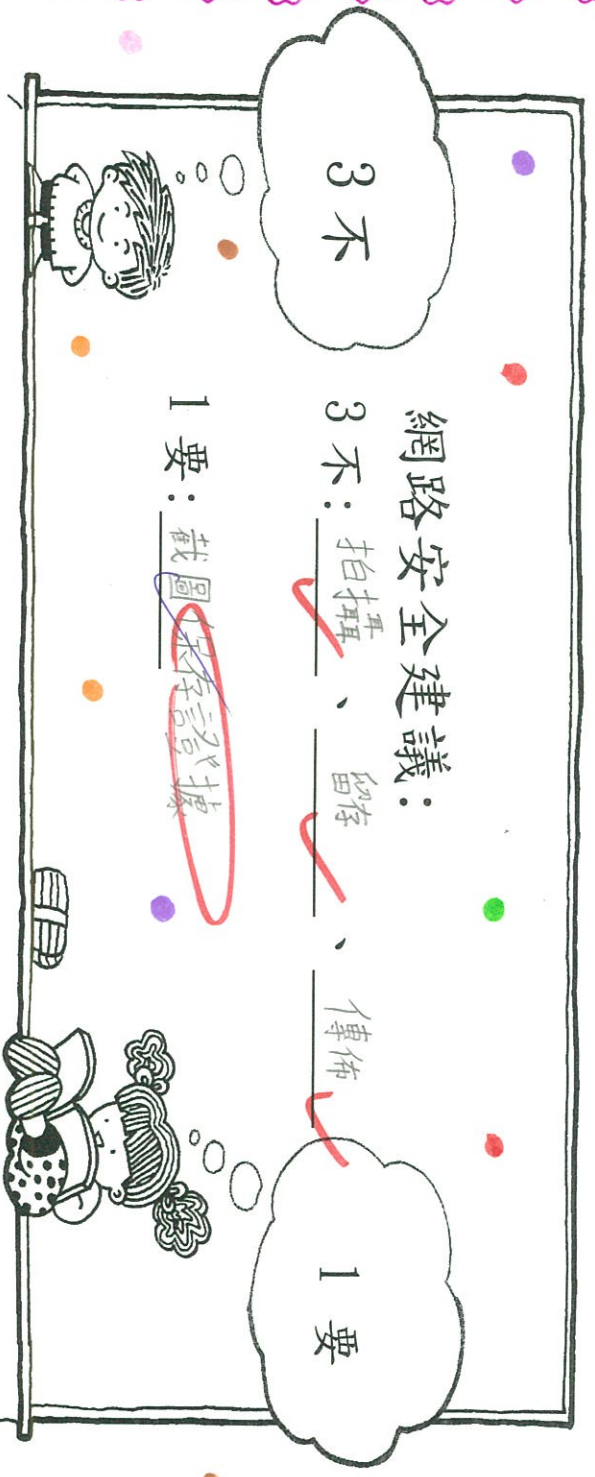 3不
網路安全建議：
3不：拍攝、留存、傳佈
1要：截圖保存證據
1要